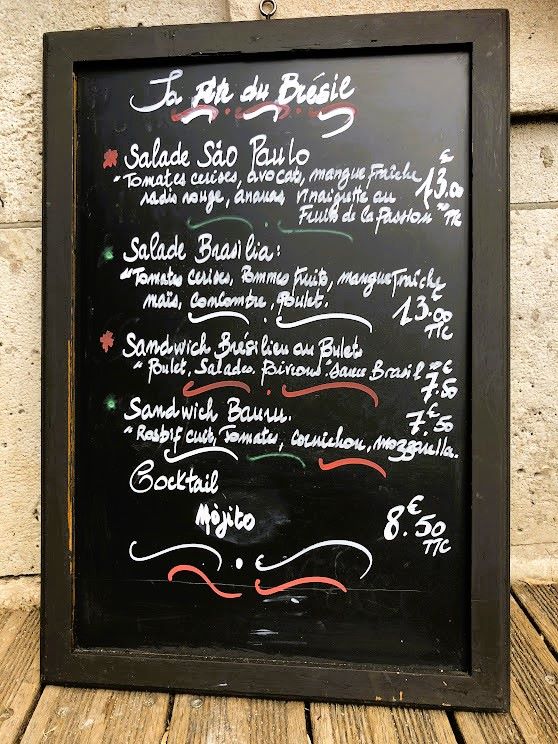 du Brésil
Salade São Paulo
"Tomates cerises, avocat, mangue Fraîche
radis rouge, ananas vinaigrette au
Fruits de la Passion"
13.00 €
TTC
Salade Brasilia:
"Tomates Cerises, Pommes Fruits, mangue Fraîche
maïs, Concombre, Poulet.
13.00
TTC
Sandwich Brésilien au Pulet
"Pulet, Salades, Poivrons" Sauce Brasil"
7.50 €
Sandwich Bauru.
7.50 €
"Rosbif cuit, Tomates, Cornichon, mozzarella.
Cocktail
Mòjito
8.50 €
TTC